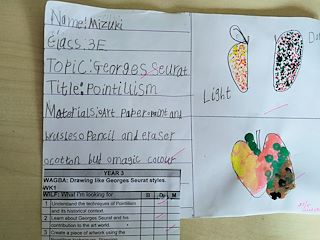 Name:Mizuki
Class:3E
Topic:Georges Seurat
Title:Pointillism
Materials:Art Paper
Pencil and eraser
magic colour
Light
YEAR 3
WAGBA: Drawing like Georges Seurat styles.
WK1
WILF: What I'm looking for:
1 Understand the techniques of Pointillism
and its historical context.
2 Learn about Georges Seurat and his
contribution to the art world.
3 Create a piece of artwork using the